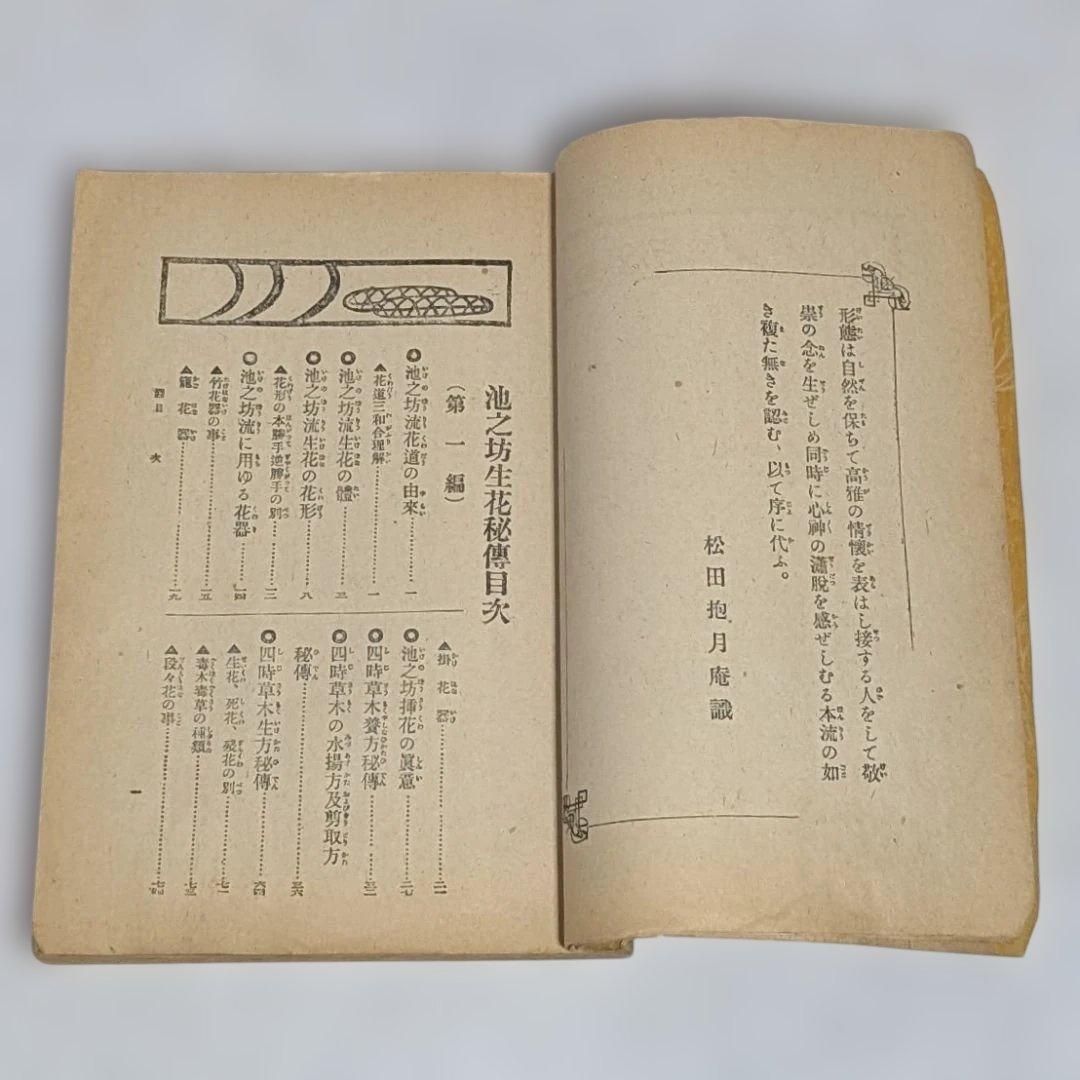 形態は自然を保ちて高雅の情懷を表はし接する人をして敬
崇の念を生ぜしめ同時に心神の瀟脫を感ぜしむる本流の如
き複た無きを認む、以て序に代ふ。
松田抱月庵識
池之坊生花秘傳目次
(第一編)
◉池之坊流花道の由來………一
▲花道三和合理解………一
◉池之坊流生花の體………三
◉池之坊流生花の花形………八
▲花形の本勝手逆勝手の別………一三
◉池之坊流に用ゆる花器………一四
▲竹花器の事………一五
▲籠花器………一九
▲掛花器………二一
◉池之坊挿花の眞意………二七
◉四時草木養方秘傳………三二
◉四時草木の水揚方及剪取方
秘傳………三六
◉四時草木生方秘傳………六四
▲生花、死花、殘花の別………七一
▲毒木毒草の種類………七三
▲段々花の事………七四
目次
一